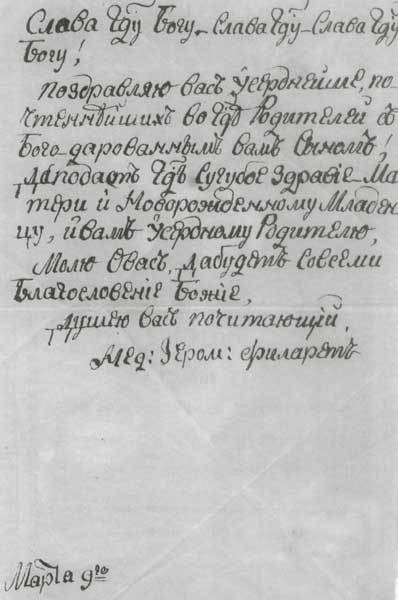 Слава Гдꙋ Богу. Слава Гдꙋ. Слава Гдꙋ
Богу!
Поздравляю васъ Ꙋсерднейше, по-
чтеннѣйшихъ во Гдѣ Родителей съ
Бого-дарованнымъ вамъ Сыномъ!
Да подастъ Гдь Сугубое Здравiе Ма-
тери и Новорожденному Младен-
цу, и вамъ Ꙋсердному Родителю,
Молю О васъ, да будетъ Со всеми
Благословенiе Божiе,
Душею васъ почитающiй,
Мед: Iером: Филаретъ
Марта 9го